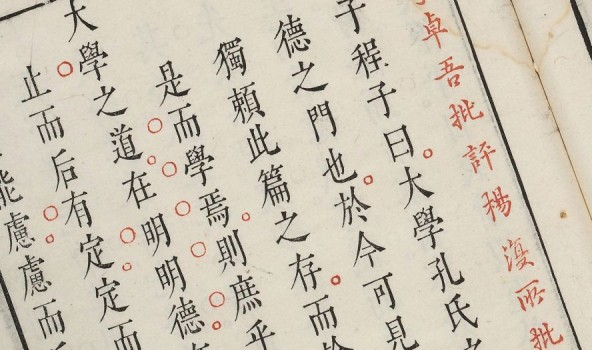 卓吾批評楊復所批
子程子曰大學孔氏
德之門也於今可見
獨賴此篇之存而
是而學焉則庶乎
大學之道在明明德
止而后有定定而
能慮慮而